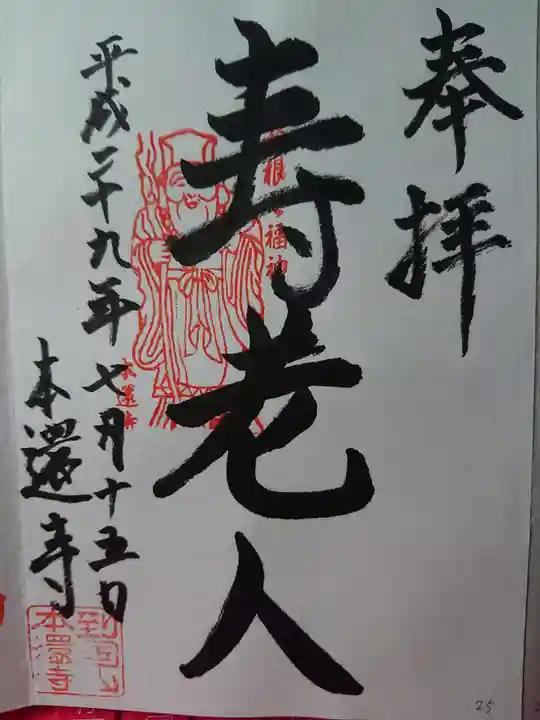 奉拝
寿老人
平成二十九年七月十五日
本還寺
福神
本還寺
25